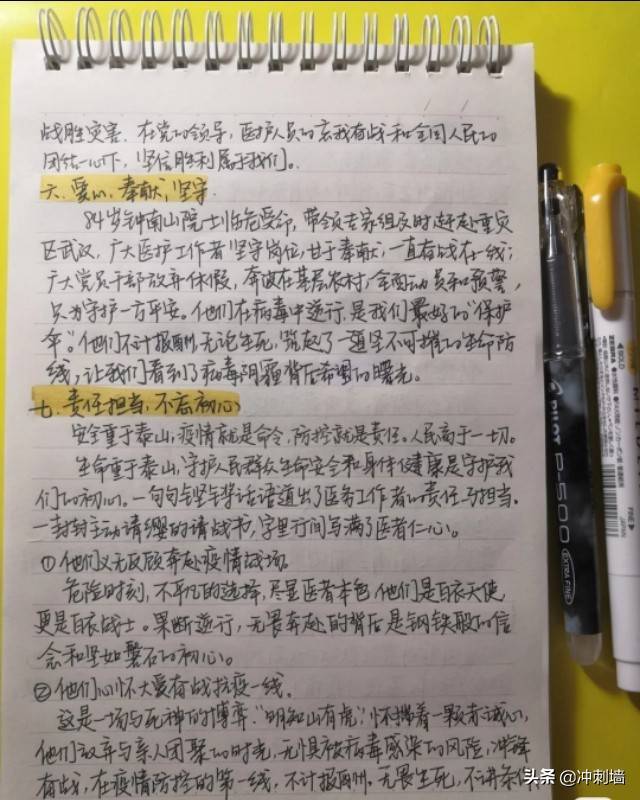 战胜灾害. 在党的领导, 医护人员的忘我奋战和全国人民的
团结一心下, 坚信胜利属于我们。
六. 爱心, 奉献, 坚守
84岁钟南山院士临危受命, 带领专家组及时赶赴重灾
区武汉, 广大医护工作者坚守岗位, 甘于奉献, 一直奋战在一线;
广大党员干部放弃休假, 奔波在基层农村, 全面动员和预警,
只为守护一方平安。他们在病毒中逆行, 是我们最好的"保护
伞"。他们不计报酬, 无论生死, 筑起了一道坚不可摧的生命防
线, 让我们看到了病毒阴霾背后希望的曙光。
七. 责任担当, 不忘初心
安全重于泰山, 疫情就是命令, 防控就是责任。人民高于一切。
生命重于泰山, 守护人民群众生命安全和身体健康是守护我
们的初心。一句句铿锵话语道出了医务工作者的责任与担当.
一封封主动请缨的请战书, 字里行间写满了医者仁心。
①他们义无反顾奔赴疫情战场.
危险时刻, 不平凡的选择, 尽显医者本色. 他们是白衣天使
更是白衣战士。果断逆行, 无畏奔赴的背后是钢铁般的信
念和坚如磐石的初心。
②他们心怀大爱奋战抗疫一线.
这是一场与死神的博弈. "明知山有虎". 怀揣着一颗赤诚心,
他们放弃与亲人团聚的时光, 无惧被病毒感染的风险, 冲锋
奋战, 在疫情防控的第一线, 不计报酬. 无畏生死, 不讲条件
PILOT
P-500
EXTRA FINE
BOLD
FINE
JAPAN
头条 @冲刺墙